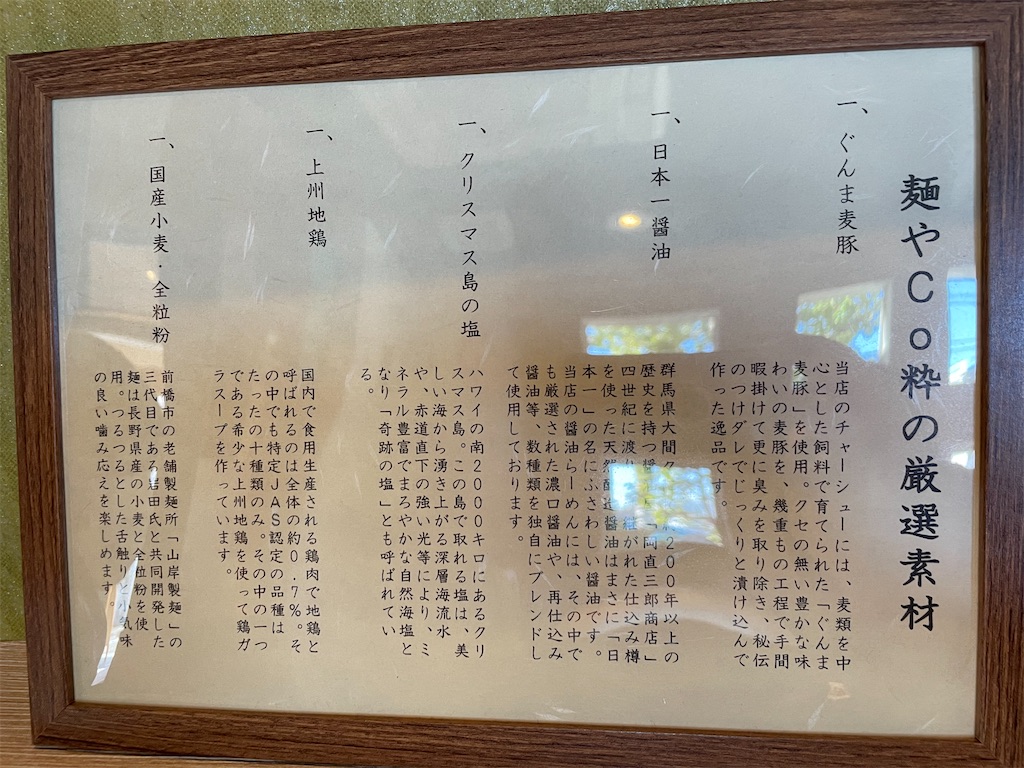 麺やCo粋の厳選素材
一、ぐんま麦豚
当店のチャーシューには、麦類を中
心とした飼料で育てられた「ぐんま
麦豚」を使用。クセの無い豊かな味
わいの麦豚を、幾重もの工程で手間
暇掛けて更に臭みを取り除き、秘伝
のつけダレでじっくりと漬け込んで
作った逸品です。
一、日本一醤油
群馬県大間々 200年以上の
歴史を持つ 「岡直三郎商店」
四世紀に渡り 継がれた仕込み樽
を使った天然醸造醤油はまさに「日
本一」の名にふさわしい醤油です。
当店の醤油らーめんには、その中で
も厳選された濃口醤油や、再仕込み
醤油等、数種類を独自にブレンドし
て使用しております。
一、クリスマス島の塩
ハワイの南2000キロにあるクリ
スマス島。この島で取れる塩は、美
しい海から湧き上がる深層海流水
や、赤道直下の強い光等により、ミ
ネラル豊富でまろやかな自然海塩と
なり「奇跡の塩」とも呼ばれてい
る。
一、上州地鶏
国内で食用生産される鶏肉で地鶏と
呼ばれてるのは全体の約0.7%。そ
の中でも特定JAS認定の品種は
たったの十種類のみ。その中の一つ
である希少な上州地鶏を使って鶏ガ
ラスープを作っています。
一、国産小麦・全粒粉
前橋市の老舗製麺所「山岸製麺」の
三代目である岩田氏と共同開発した
麺は長野県産の小麦と全粒粉を使
用。つるつるとした舌触りと小気味
の良い噛み応えを楽しめます。